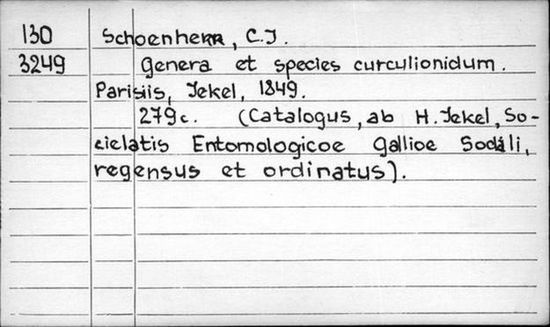 130 Schoenherr, C.J.
3249 Genera et species curculionidum.
Parisiis, Jekel, 1849.
279c. (Catalogus, ab H. Jekel, So-
cielatis Entomologicoe Gallioe Sodali,
regensus et ordinatus).